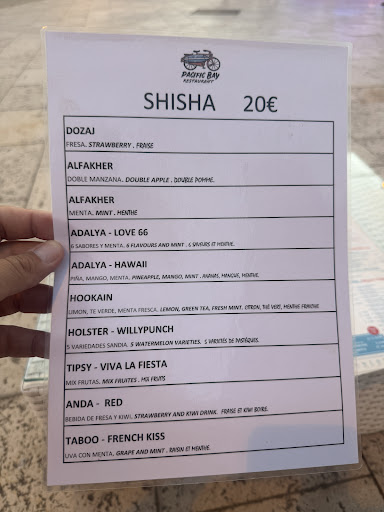 PACIFIC BAY
RESTAURANT
SHISHA 20€
DOZAJ
FRESA. STRAWBERRY . FRAISE
ALFAKHER
DOBLE MANZANA. DOUBLE APPLE . DOUBLE POMME.
ALFAKHER
MENTA. MINT . MENTHE
ADALYA - LOVE 66
6 SABORES Y MENTA. 6 FLAVOURS AND MINT . 6 SAVEURS ET MENTHE.
ADALYA - HAWAII
PIÑA, MANGO, MENTA. PINEAPPLE, MANGO, MINT . ANANAS, MANGUE, MENTHE.
HOOKAIN
LIMON, TE VERDE, MENTA FRESCA. LEMON, GREEN TEA, FRESH MINT. CITRON, THÉ VERT, MENTHE FRAICHE
HOLSTER - WILLYPUNCH
5 VARIEDADES SANDIA. 5 WATERMELON VARIETIES. 5 VARIÉTÉS DE PASTÈQUES.
TIPSY - VIVA LA FIESTA
MIX FRUTAS. MIX FRUITES . MIX FRUITS
ANDA - RED
BEBIDA DE FRESA Y KIWI. STRAWBERRY AND KIWI DRINK. FRAISE ET KIWI BOIRE.
TABOO - FRENCH KISS
UVA CON MENTA. GRAPE AND MINT . RAISIN ET MENTHE.